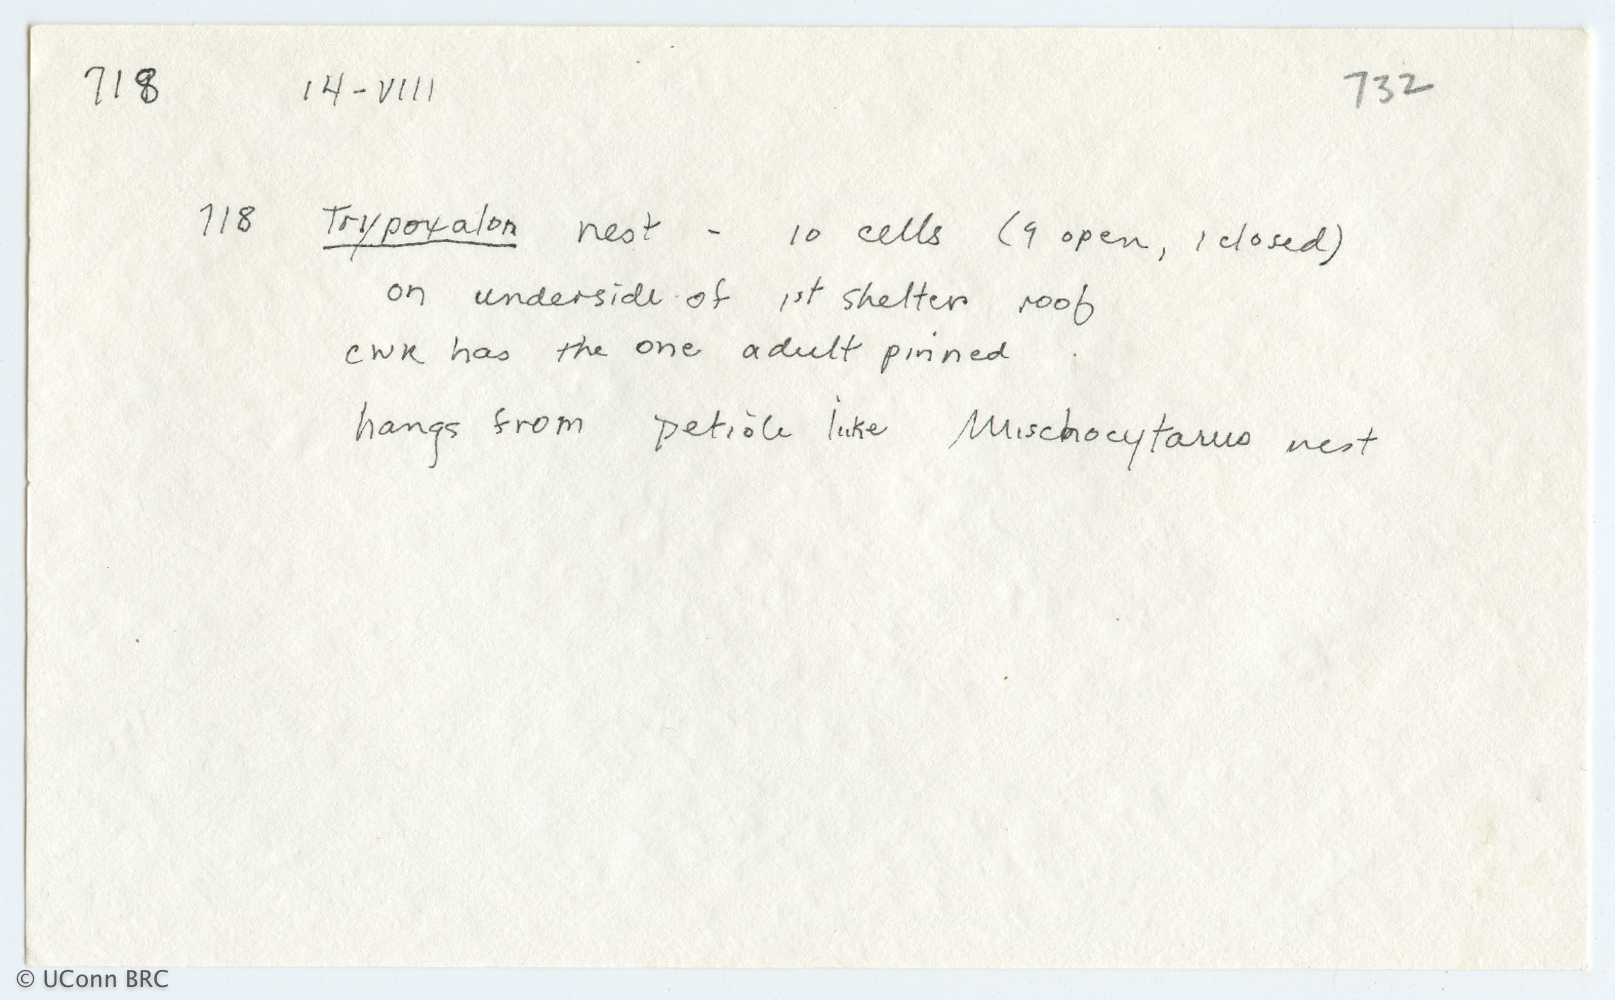 718 14-VIII 732
718 Trypoxalon nest - 10 cells (9 open, 1 closed)
on underside of 1st shelter roof
CWR has the one adult pinned
hangs from petiole like Mischocytarus nest
© UConn BRC